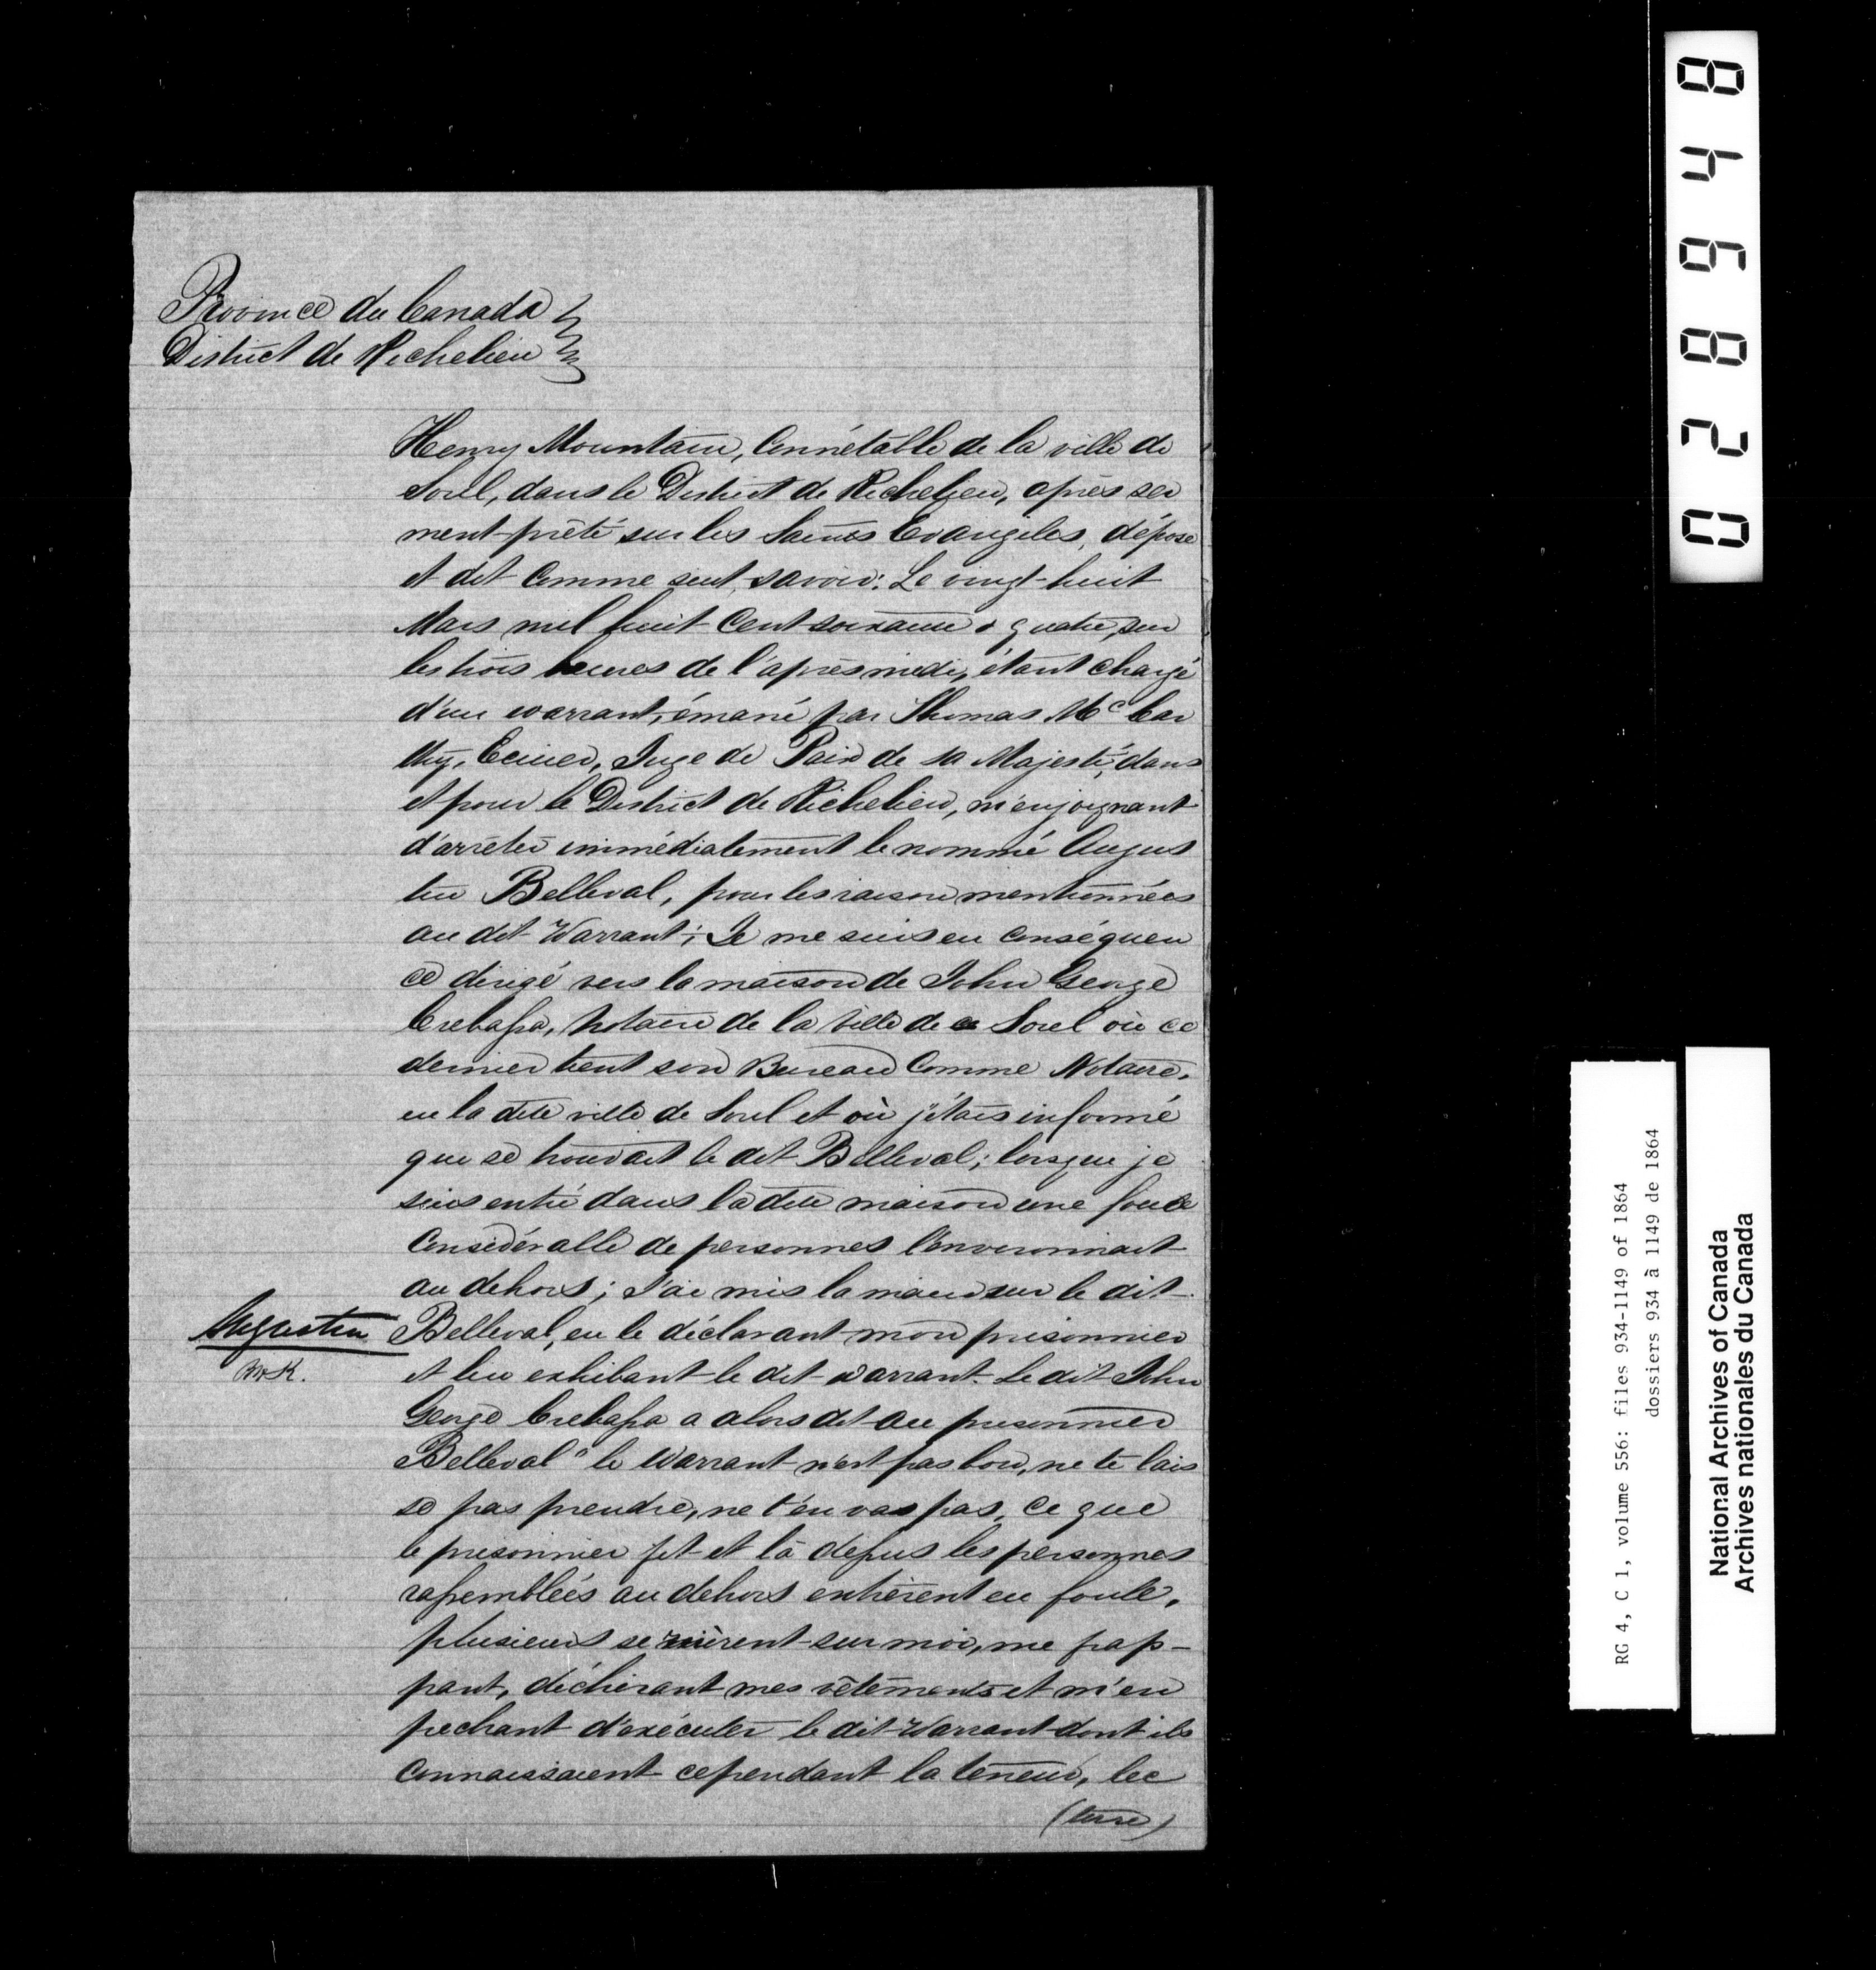 Province du Canada
District de Richelieu
Henry Mountain, Connétable de la ville de
Sorel, dans le District de Richelieu, après ser
ment prêté sur les Saints Evangiles, dépose
et dit comme suit, savoir: Le vingt-huit
Mars mil huit Cent soixante & quatre, sur
les trois heures de l'après midi, étant chargé
d'un warrant, émané par Thomas McCar
thy, Ecuier, Juge de Paix de sa Majesté, dans
et pour le District de Richelieu, m'enjoignant
d'arrêter immédiatement le nommé Augus
tin Belleval, pour les raisons mentionnées
au dit Warrant; Je me suis en conséquen
ce dirigé vers la maison de John George
Crebassa, Notaire de la ville de Sorel où ce
dernier tient son Bureau Comme Notaire,
en la dite ville de Sorel et où j'étais informé
que se trouvait le dit Belleval; lorsque je
suis entré dans la dite maison une foule
Considérable de personnes l'environnait
au dehors; J'ai mis la main sur le dit
Augustin Belleval, en le déclarant mon prisonnier
et lui exhibant le dit warrant. Le dit John
George Crebassa a alors dit au prisonnier
Belleval " le Warrant n'est pas bon, ne te lais
se pas prendre, ne t'en vas pas, ce que
le prisonnier fit et là dessus les personnes
rassemblées au dehors entrèrent en foule,
plusieurs se ruèrent sur moi, me frap-
pant, déchirant mes vêtements et m'em
pechant d'exécuter le dit Warrant dont ils
connaissaient cependant la teneur, lec
(ture)
028948
RG 4, C 1, volume 556: files 934-1149 of 1864
dossiers 934 à 1149 de 1864
National Archives of Canada
Archives nationales du Canada